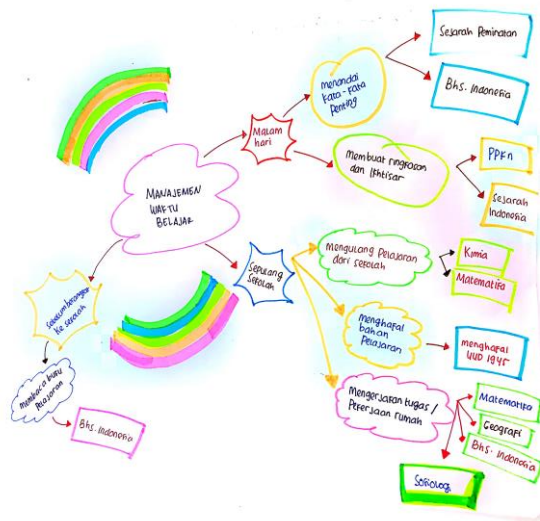 MANAJEMEN
WAKTU
BELAJAR
Malam
hari
Menandai
Kata-Kata
Penting
Sejarah Peminatan
Bhs. Indonesia
Membuat ringkasan
dan Ikhtisar
PPKn
Sejarah
Indonesia
Sepulang
Sekolah
Mengulang Pelajaran
dari sekolah
Kimia
Matematika
Menghafal
bahan
Pelajaran
menghafal
UUD 1945
Mengerjakan tugas /
Pekerjaan rumah
Matematika
Geografi
Bhs. Indonesia
Sosiologi
Sebelum berangkat
Ke sekolah
membaca buku
Pelajaran
Bhs. Indonesia